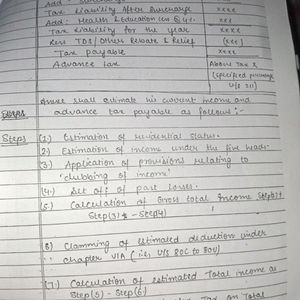 Add:- Surcharge
Tax Liability After Surcharge xxxx
Add:- Health & Education Cess @ 4%. xxxx
Tax Liability for the year xxxx
Less TDS/Other Rebate & Relief (xxx)
Tax Payable xxxx
Advance tax Above Tax x
(specified percentage
U/s 211)
shall estimate his current income and
advance tax payable as follows:-
Steps (1.) Estimation of residential status.
(2.) Estimation of income under the five heads.
(3.) Application of provisions relating to
'clubbing of income'
(4.) Set off of past losses.
(5.) Calculation of Gross total Income Step(2)+
Step(3) - Step(4)
(6) Clamming of estimated deduction under
chapter VIA (i.e., U/s 80C to 80U)
(7.) Calculation of estimated Total income as
Step(5) - Step(6)
Tax on Total